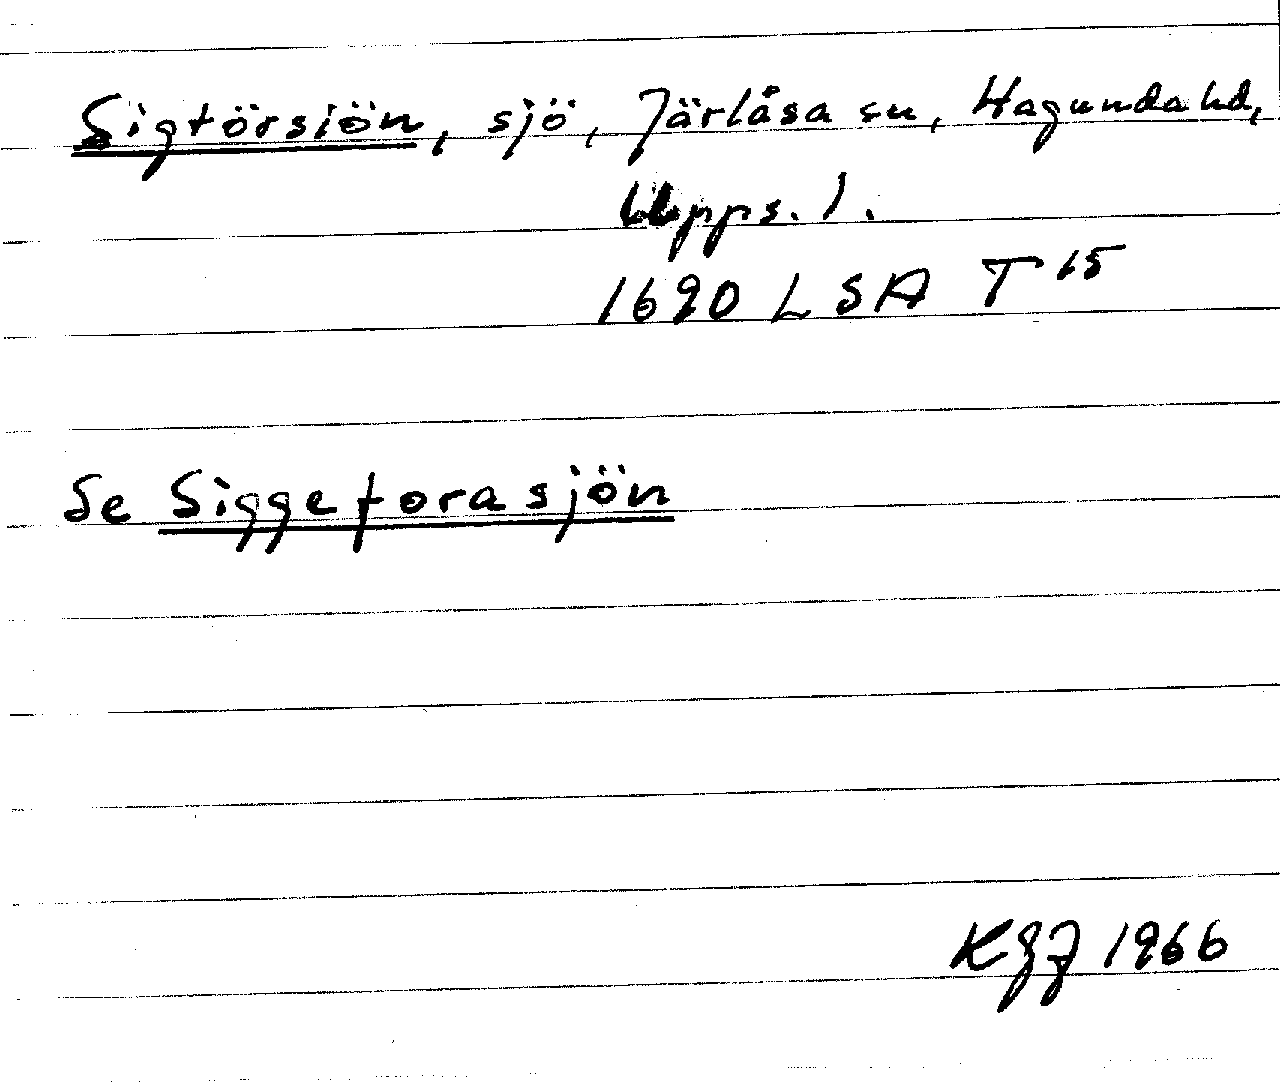 Sigtörsiön, sjö, Järlåsa sn, Hagunda hd,
Upps. l.
1690 LSA T 15
Se Siggeforasjön
KGJ 1966